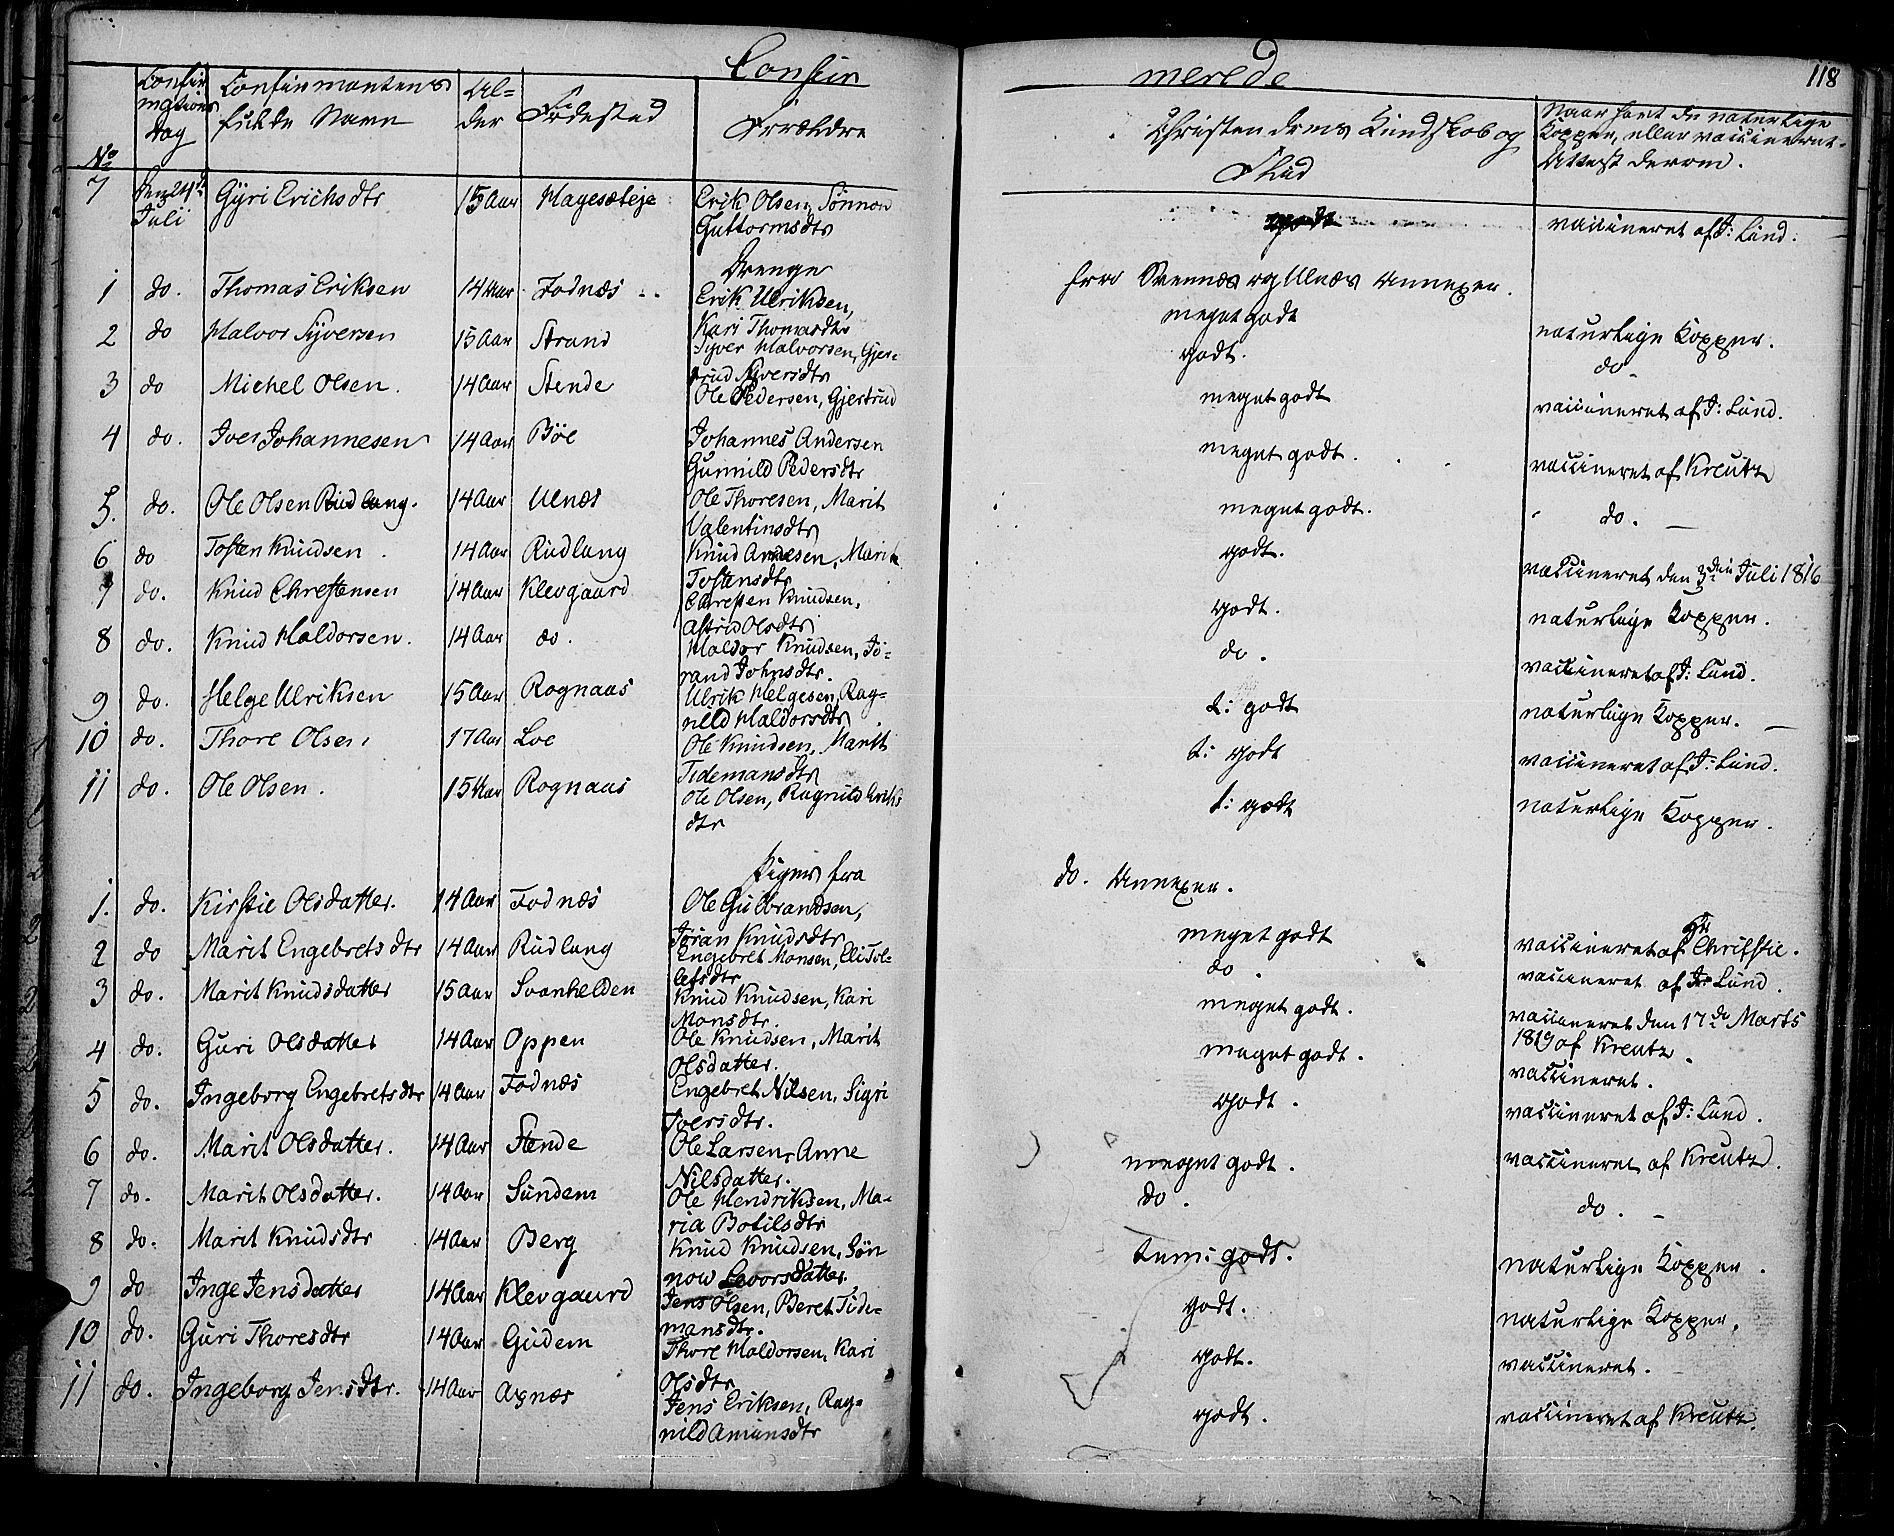 Confir merede 118
No Confirmations Dag Confirmantens fulde Navn Alder Födested Forældre Christendoms Kundskab og Flid Naar havt de naturlige Kopper, eller vaccineret. Attest derom.
7 Den 24de Juli Gÿri Erichsdtr 15 Aar Hagesæteje Erik Olsen, Sönnon Guttormsdtr godt vaccineret af J: Lund.
Drenge fra Svennæs og Ulnæs Annexer.
1 do. Thomas Eriksen 14 Aar Fodnæs Erik Ulriksen, Kari Thomasdtr meget godt naturlige Kopper.
2 do Halvor Syversen 15 Aar Strand Syver Halvorsen, Gjertrud Syversdtr godt. do
3 do Michel Olsen. 14 Aar Stende Ole Pedersen, Gjertrud meget godt vaccineret af J: Lund.
4 do. Iver Johannesen 14 Aar Böe Johannes Andersen Gunnild Pedersdtr meget godt. vaccineret af Kreutz
5. do. Ole Olsen Rudlang. 14 Aar Ulnæs Ole Thoresen, Marit Valentinsdtr meget godt. do.
6 do Tosten Knudsen. 14 Aar Rudlang Knud Arnesen, Marit Tostensdtr godt. vaccineret den 3die Juli 1816
7 do. Knud Chrestensen 14 Aar Klevgaard Chresten Knudsen, Astrid Olsdtr godt. naturlige Kopper.
8 do. Knud Haldorsen. 14 Aar do. Haldor Knudsen, Jörand Johnsdtr. do. vaccineret af J: Lund.
9 do. Helge Ulriksen 15 Aar Rognaas Ulrik Helgesen, Ragnild Haldorsdtr t: godt naturlige Kopper.
10 do. Thore Olsen 17 Aar Loe Ole Knudsen, Marith Tidemansdtr t: godt vaccineret af J: Lund.
11 do. Ole Olsen. 15 Aar Rognaas Ole Olsen, Ragnild Eriksdtr t: godt naturlige Kopper.
Piger fra do. Annexer.
1. do. Kirstie Olsdatter. 14 Aar Fodnæs Ole Gulbrandsen, Jöran Knudsdtr meget godt vaccineret af Hr Chrifstie.
2 do Marit Engebretsdtr 14 Aar Rudlang Engebret Monsen, Eli Tollefsdtr do. vaccineret af J: Lund.
3 do. Marit Knudsdatter 15 Aar Svanhelden Knud Knudsen, Kari Monsdtr. meget godt. vaccineret den 17de Marts 1819 af Kreutz.
4 do. Guri Olsdatter 14 Aar Oppen Ole Knudsen, Marit Olsdatter. meget godt. vaccineret.
5 do. Ingeborg Engebretsdtr 14 Aar Fodnæs Engebret Nilsen, Sigri Iversdtr. godt. vaccineret af J: Lund.
6 do. Marit Olsdatter. 14 Aar Stende Ole Larsen, Anne Nilsdatter. meget godt. vaccineret af Kreutz.
7 do. Marit Olsdatter. 14 Aar Sundem Ole Hendriksen, Maria Botilsdtr do. do.
8 do. Marit Knudsdtr 14 Aar Berg Knud Knudsen, Sönnow Levorsdatter. tem: godt. naturlige Kopper.
9 do Inge Jensdatter 14 Aar Klevgaard Jens Olsen, Beret Tidemansdtr. godt. naturlige Kopper.
10 do. Guri Thoresdtr 14 Aar Gudem Thore Haldorsen, Kari Olsdtr godt. vaccineret.
11 do. Ingeborg Jensdtr. 14 Aar Axnæs Jens Eriksen, Ragnild Amunsdtr godt. vaccineret af Kreutz.